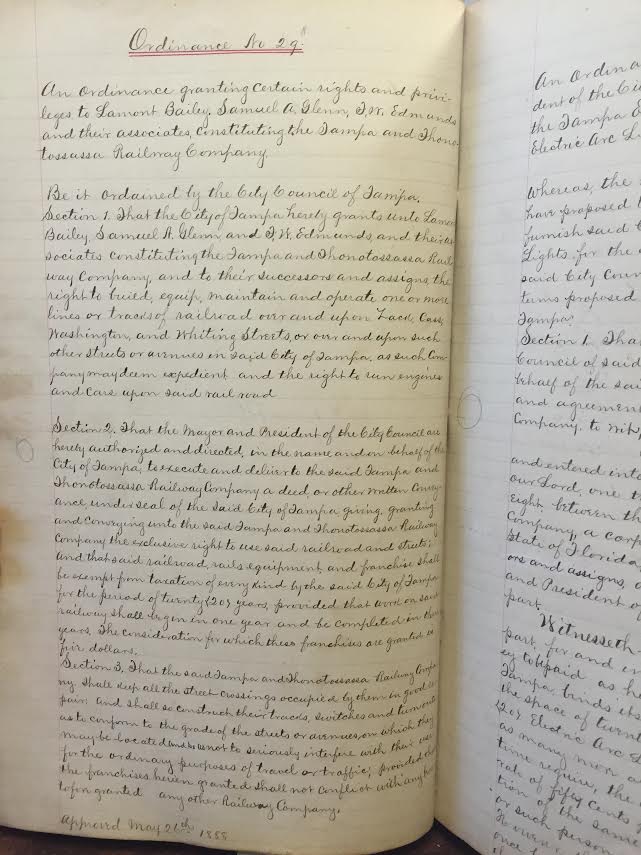 Ordinance No 29.
An Ordinance granting certain rights and privi-
leges to Lamont Bailey, Samuel A. Glenn, F. W. Edmunds
and their associates, constituting the Tampa and Thono-
tossassa Railway Company.
Be it ordained by the City Council of Tampa.
Section 1. That the City of Tampa hereby grants unto Lamont
Bailey, Samuel A. Glenn and F. W. Edmunds, and their as
sociates constituting the Tampa and Thonotossassa Rail
way Company, and to their successors and assigns, the
right to build, equip, maintain and operate one or more
lines or tracks of railroad over and upon Zack, Cass,
Washington, and Whiting Streets, or over and upon such
other streets or avenues in said City of Tampa, as such Com-
pany may deem expedient and the right to run engines
and cars upon said rail road
Section 2. That the Mayor and President of the City Council are
hereby authorized and directed, in the name and on behalf of the
City of Tampa, to execute and deliver to the said Tampa and
Thonotossassa Railway Company a deed, or other written convey-
ance, under seal of the said City of Tampa giving, granting
and conveying unto the said Tampa and Thonotossassa Railway
Company the exclusive right to use said railroad and streets;
and that said railroad, rails equipment, and franchise shall
be exempt from taxation of every kind by the said City of Tampa
for the period of twenty (20) years, provided that work on said
railway shall begin in one year and be completed in three
years. The consideration for which these franchises are granted is
five dollars.
Section 3. That the said Tampa and Thonotossassa Railway Compa
ny shall keep all the street-crossings occupied by them in good re
pair; and shall so construct their tracks, switches and turnouts
as to conform to the grade of the streets or avenues, on which they
may be located and so as not to seriously interfere with their use
for the ordinary purposes of travel or traffic; provided that
the franchises herein granted shall not conflict with any
granted any other Railway Company.
Approved May 26th 1888
An Ordina
dent of the Ci
the Tampa
Electric Arc L
Whereas, the
have proposed
furnish said
Lights. for the
said City Coun
terms proposed
Tampa.
Section 1. That
Council of said
behalf of the sai
and agreemen
Company. to wit,
and entered into
our Lord, one t
Eight between th
Company, a corp
State of Florida,
ors and assigns,
and President of
part.
Witnesseth
part, for and
ey to be paid as h
Tampa, binds its
the space of twent
(20) Electric Arc L
as many more a
time require, the
rate of fifty cents
tion of the sam
or such person